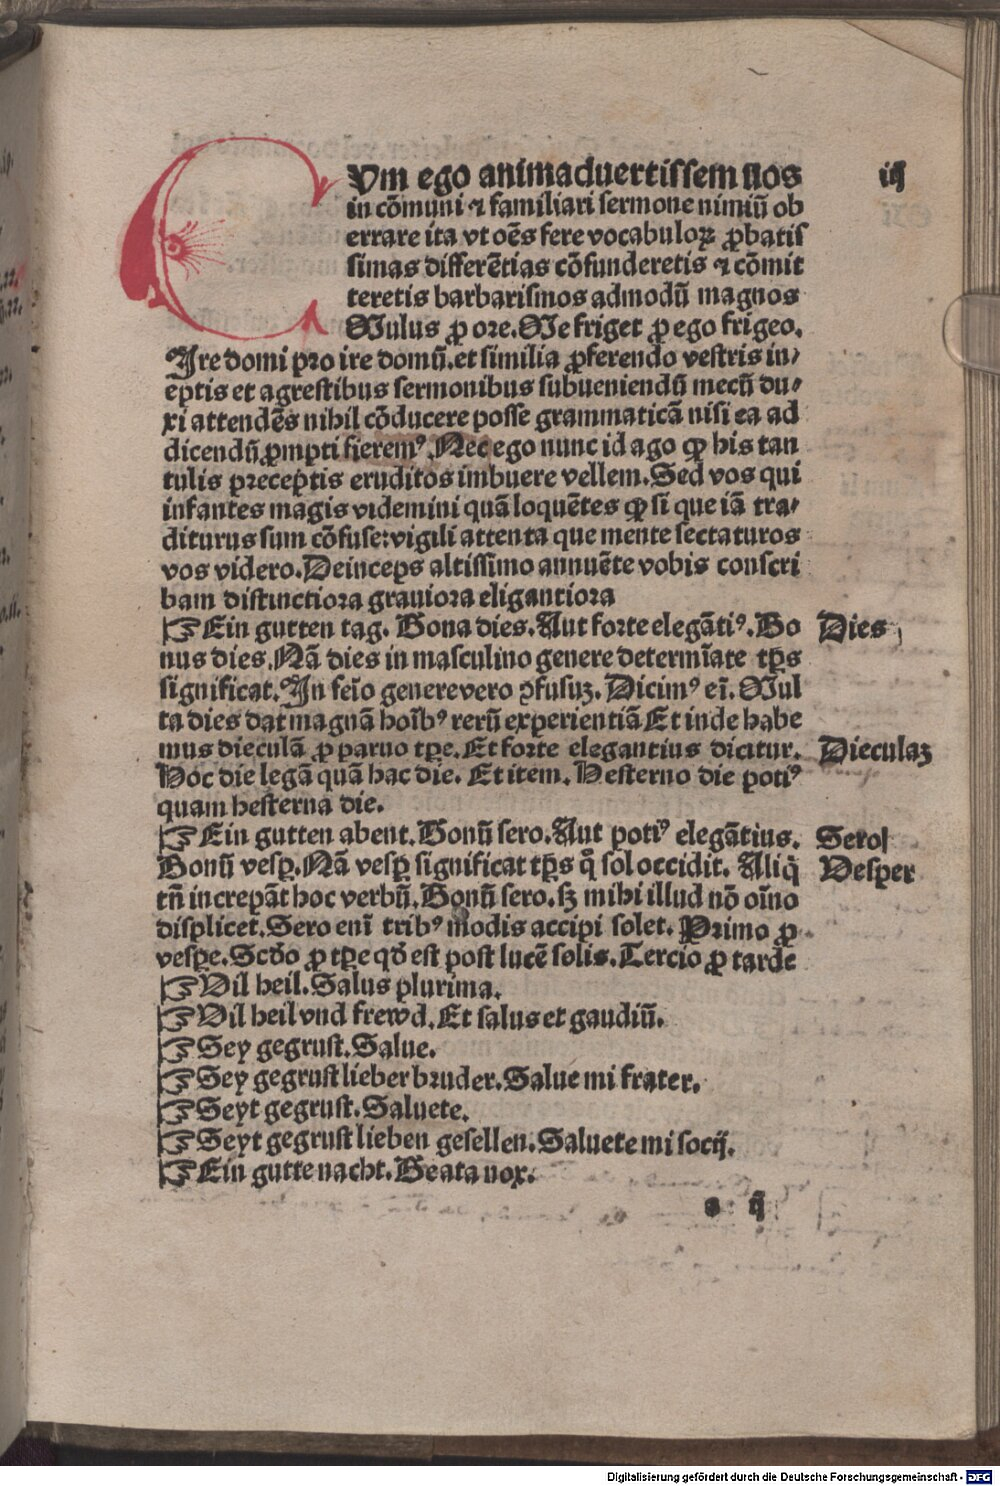 CUm ego animaduertissem uos
iij
in cōmuni ⁊ familiari sermone nimiū ob
errare ita vt oēs fere vocabuloꝝ ꝓbatis
simas differētias cōfunderetis ⁊ cōmit
teretis barbarismos admodū magnos
Mulus ꝓ ore. Me friget ꝓ ego frigeo.
Ire domi pro ire domū. et similia ꝓferendo vestris in⸗
eptis et agrestibus sermonibus subueniendū mecū du⸗
xi attendēs nihil cōducere posse grammaticā nisi ea ad
dicendū ꝓmpti fieremꝰ. Nec ego nunc id ago ꝙ his tan
tulis preceptis eruditos imbuere vellem. Sed vos qui
infantes magis videmini quā loquētes ꝙ si que iā tra⸗
diturus sum cōfuse: vigili attenta que mente sectaturos
vos videro. Deinceps altissimo annuēte vobis conscri
bam distinctiora grauiora eligantiora
☞ Ein gutten tag. Bona dies. Aut forte elegātiꝰ. Bo
Dies
nus dies. Nā dies in masculino genere determīate tꝑs
significat. In feīo generevero ꝯfusuꝫ. Dicimꝰ eī. Mul
ta dies dat magnā hoībꝰ rerū experientiā Et inde habe
mus dieculā ꝓ paruo tꝑe. Et forte elegantius dicitur.
Dieculaꝫ
Hoc die legā quā hac die. Et item. Hesterno die potiꝰ
quam hesterna die.
☞ Ein gutten abent. Bonū sero. Aut potiꝰ elegātius.
Sero
Bonū vesꝑ. Nā vesꝑ significat tꝑs qͦ sol occidit. Aliq̄
Vesper
tn̄ increpāt hoc verbū. Bonū sero. sꝫ mihi illud nō oīno
displicet. Sero enī tribꝰ modis accipi solet. Primo ꝓ
vesꝑe. Scd̓o ꝓ tꝑe qd̓ est post lucē solis. Tercio ꝓ tarde
☞ Vil heil. Salus plurima.
☞ Vil heil vnd frewd. Et salus et gaudiū.
☞ Sey gegrust. Salue.
☞ Sey gegrust lieber bruder. Salue mi frater.
☞ Seyt gegrust. Saluete.
☞ Seyt gegrust lieben gesellen. Saluete mi socij.
☞ Ein gutte nacht. Beata nox.
a ij
Digitalisierung gefördert durch die Deutsche Forschungsgemeinschaft - DFG